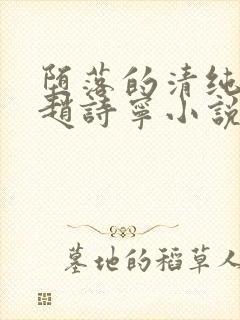 堕落的清纯
趙詩寧小說
墓地的稻草人